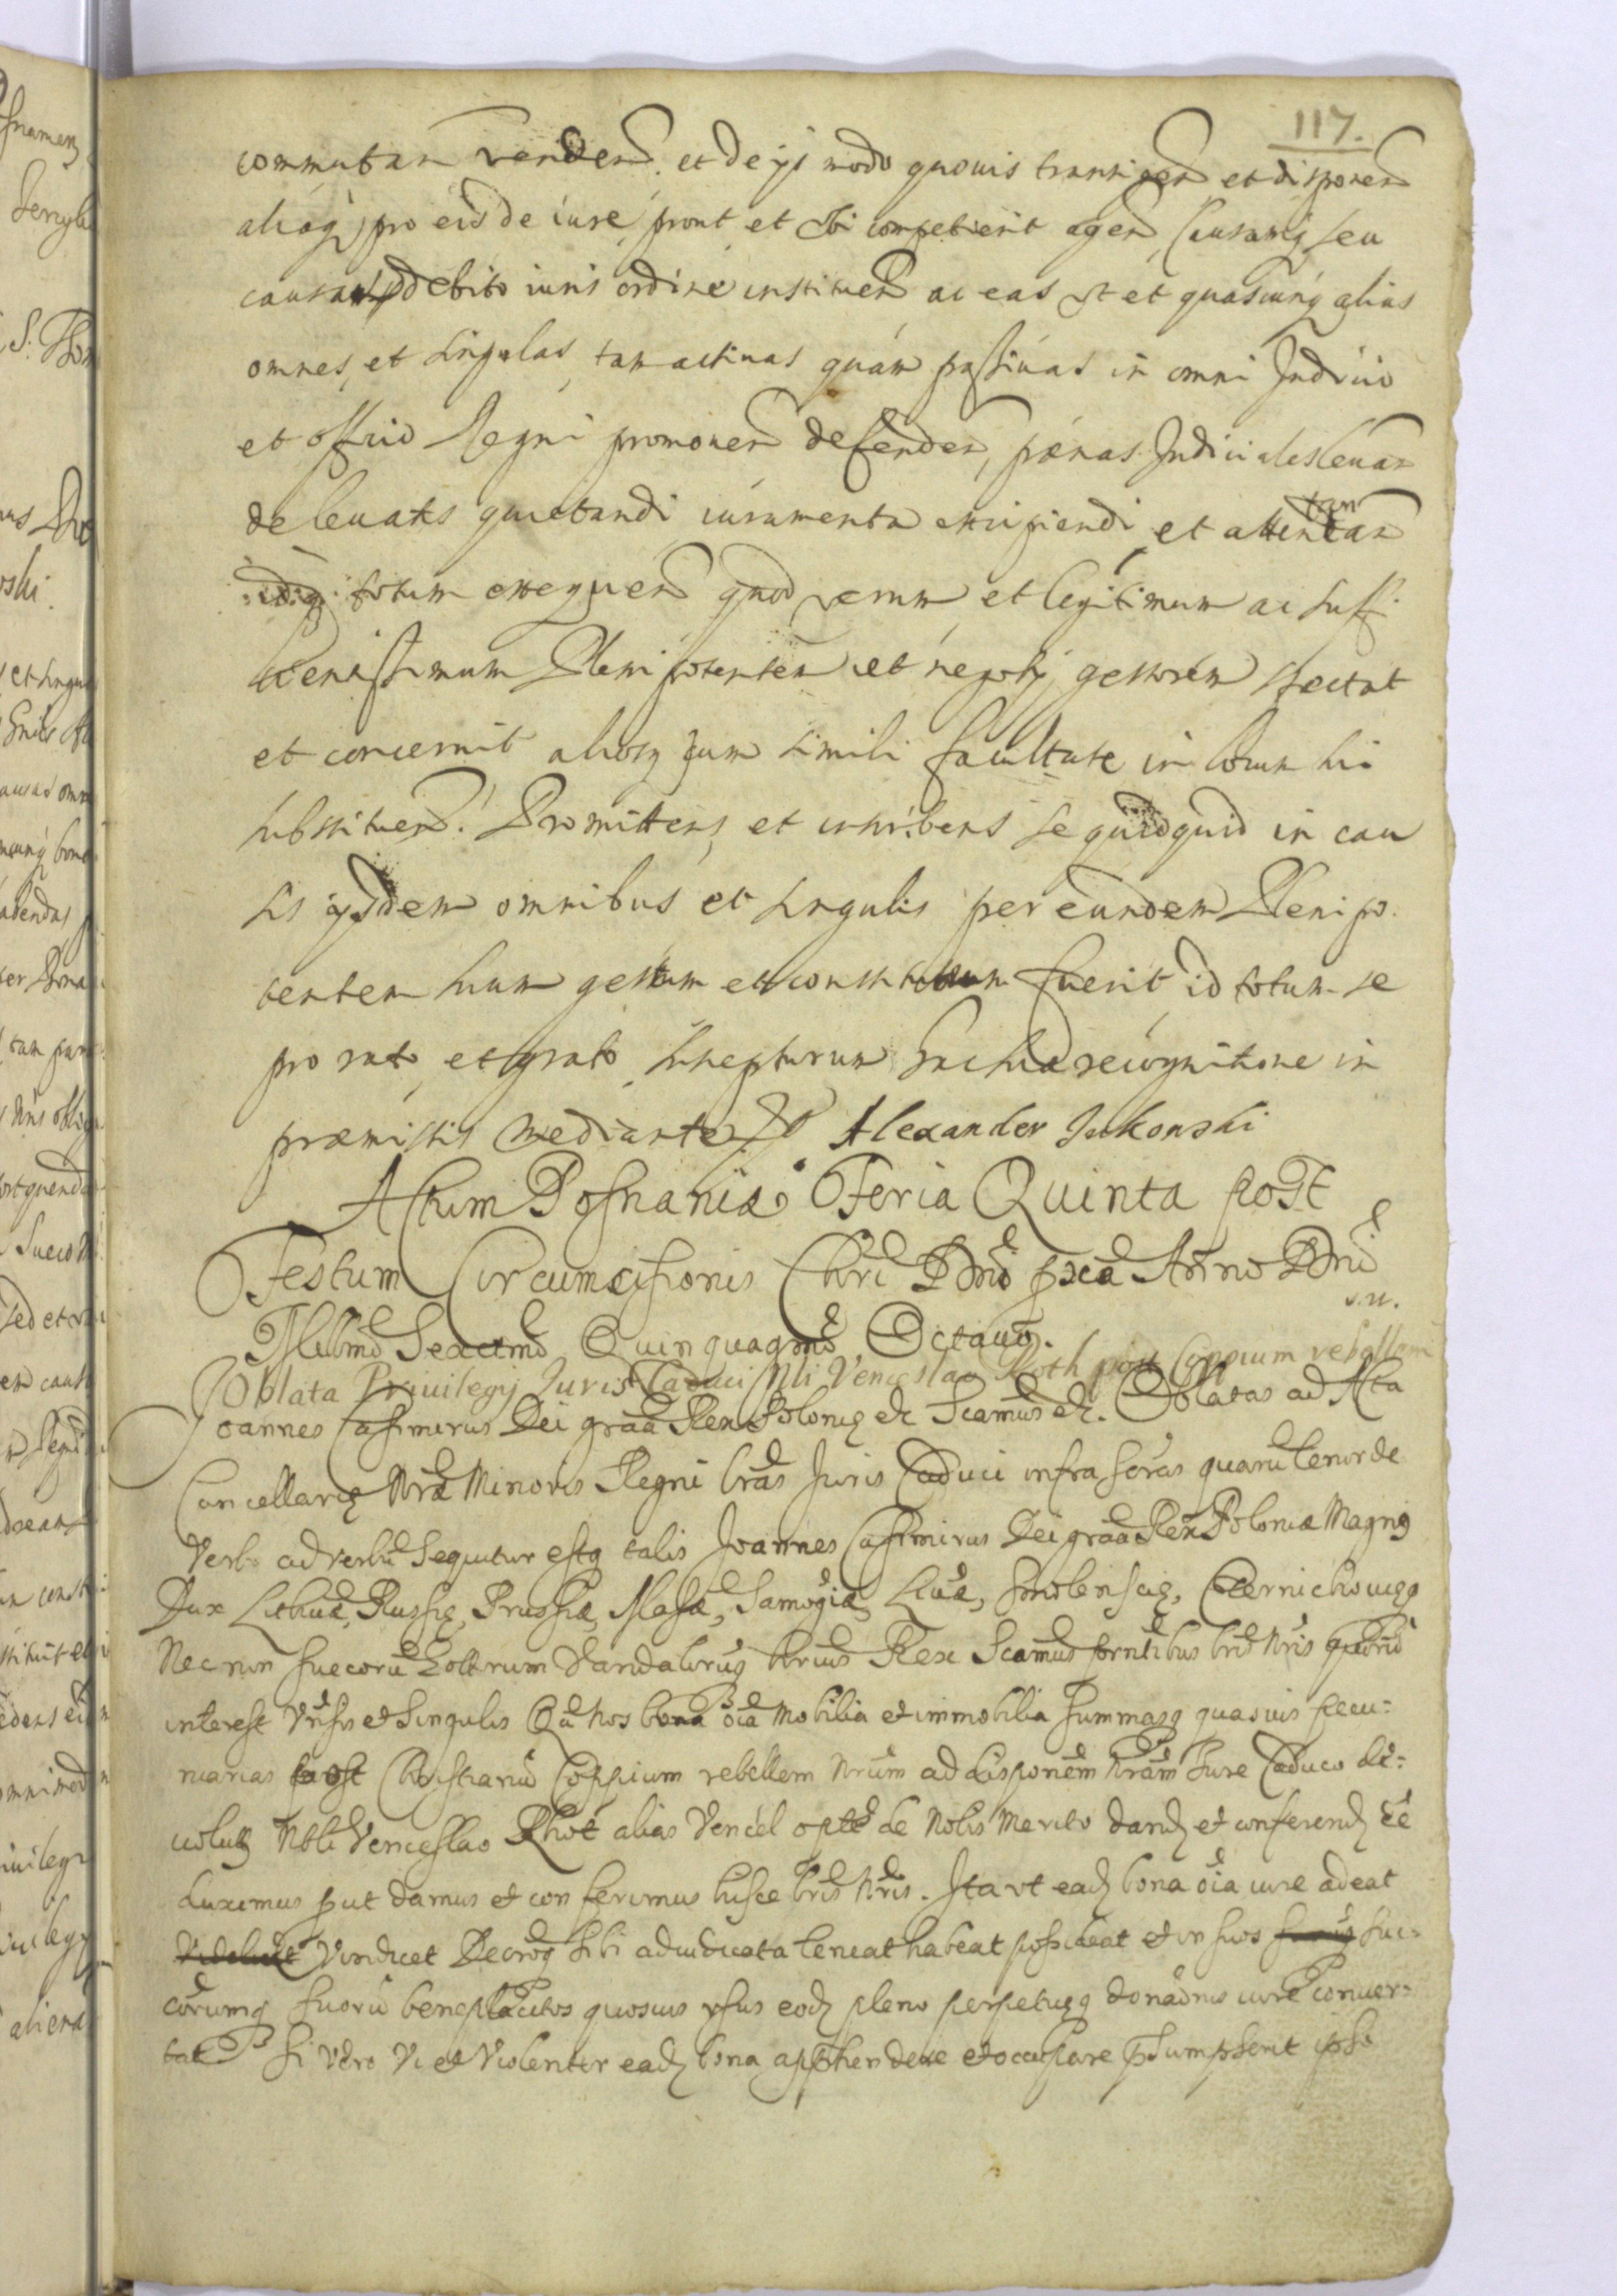 117.
commutan venden et de ijs modo quouis transigen et disponen
aliaq pro eis de iure prout et vbi competierit agen Causamq seu
causas debito iuris ordine instituen ac eas vt et quascunq alias
omnes et singulas tam actiuas quam passiuas in omni Judicio
et officio Regni promouen defenden, pœnas Judiciales leuan
de leuatis quietandi iuramenta excipiendi et attentan
tan
idq totum exequen quod verum et legitimum ac suffi
cienissimum Plenipotentem et negotij gestorem spectat
et concernit aliosq cum simili facultate in locum sui
substituen. Promittens et inscribens se quidquid in cau
sis ijsdem omnibus et singulis per eundem Plenipo
tentem suum gestum et constitutum fuerit id totum se
pro rato et grato suscepturum hac sua recognitione in
præmissis mediante Alexander Jackowski
Actum Posnaniæ Feria Quinta post
Festum Circumcisionis Chri Dni pxa Anno Dni
Mllimo Sexcmo Quinquagmo Octauo.
s.n.
Oblata Priuilegij Juris Caduci Nli Venceslao Roth post Coppium rebellem
Joannes Casimirus Dei graa Rex Polonię etc Scamus etc. Oblatas ad Acta
Cancellarię Nræ Minoris Regni lras Juris Caduci infra scras quaru tenor de
Verbo ad verbu sequitur estq talis Joannes Casimirus Dei graa Rex Poloniæ Magnq
Dux Lithuæ, Russię, Prussiæ, Masæ, Samogiæ, Liuæ, Smolenscię, Czernichouięq
Nec non Suecoru Gottorum Vandalorumq hrius Rex Scamus pntibus lris nris quoru
interest Vnisis et Singulis Qa Nos bona oia mobilia et immobilia summasq quasuis pecu=
niarias post Christianu Coppium rebellem nrum ad disponem nram Jure Caduco de=
uoluta Nbli Venceslao Rhot alias Vencel opte de Nobis merito dand et conferend ee
duximus put damus et conferimus hisce lris nris. Ita vt ead bona oia iure adeat
Vindicet Decroq sibi adiudicata teneat habeat possideat et in suos suc=
corumq suoru beneplacitos quosuis vsus eod pleno perpetuoq donaonis iure conuer=
tat. Si vero Vi et Violenter ead bona apphendere et occupare psumpserit ipso